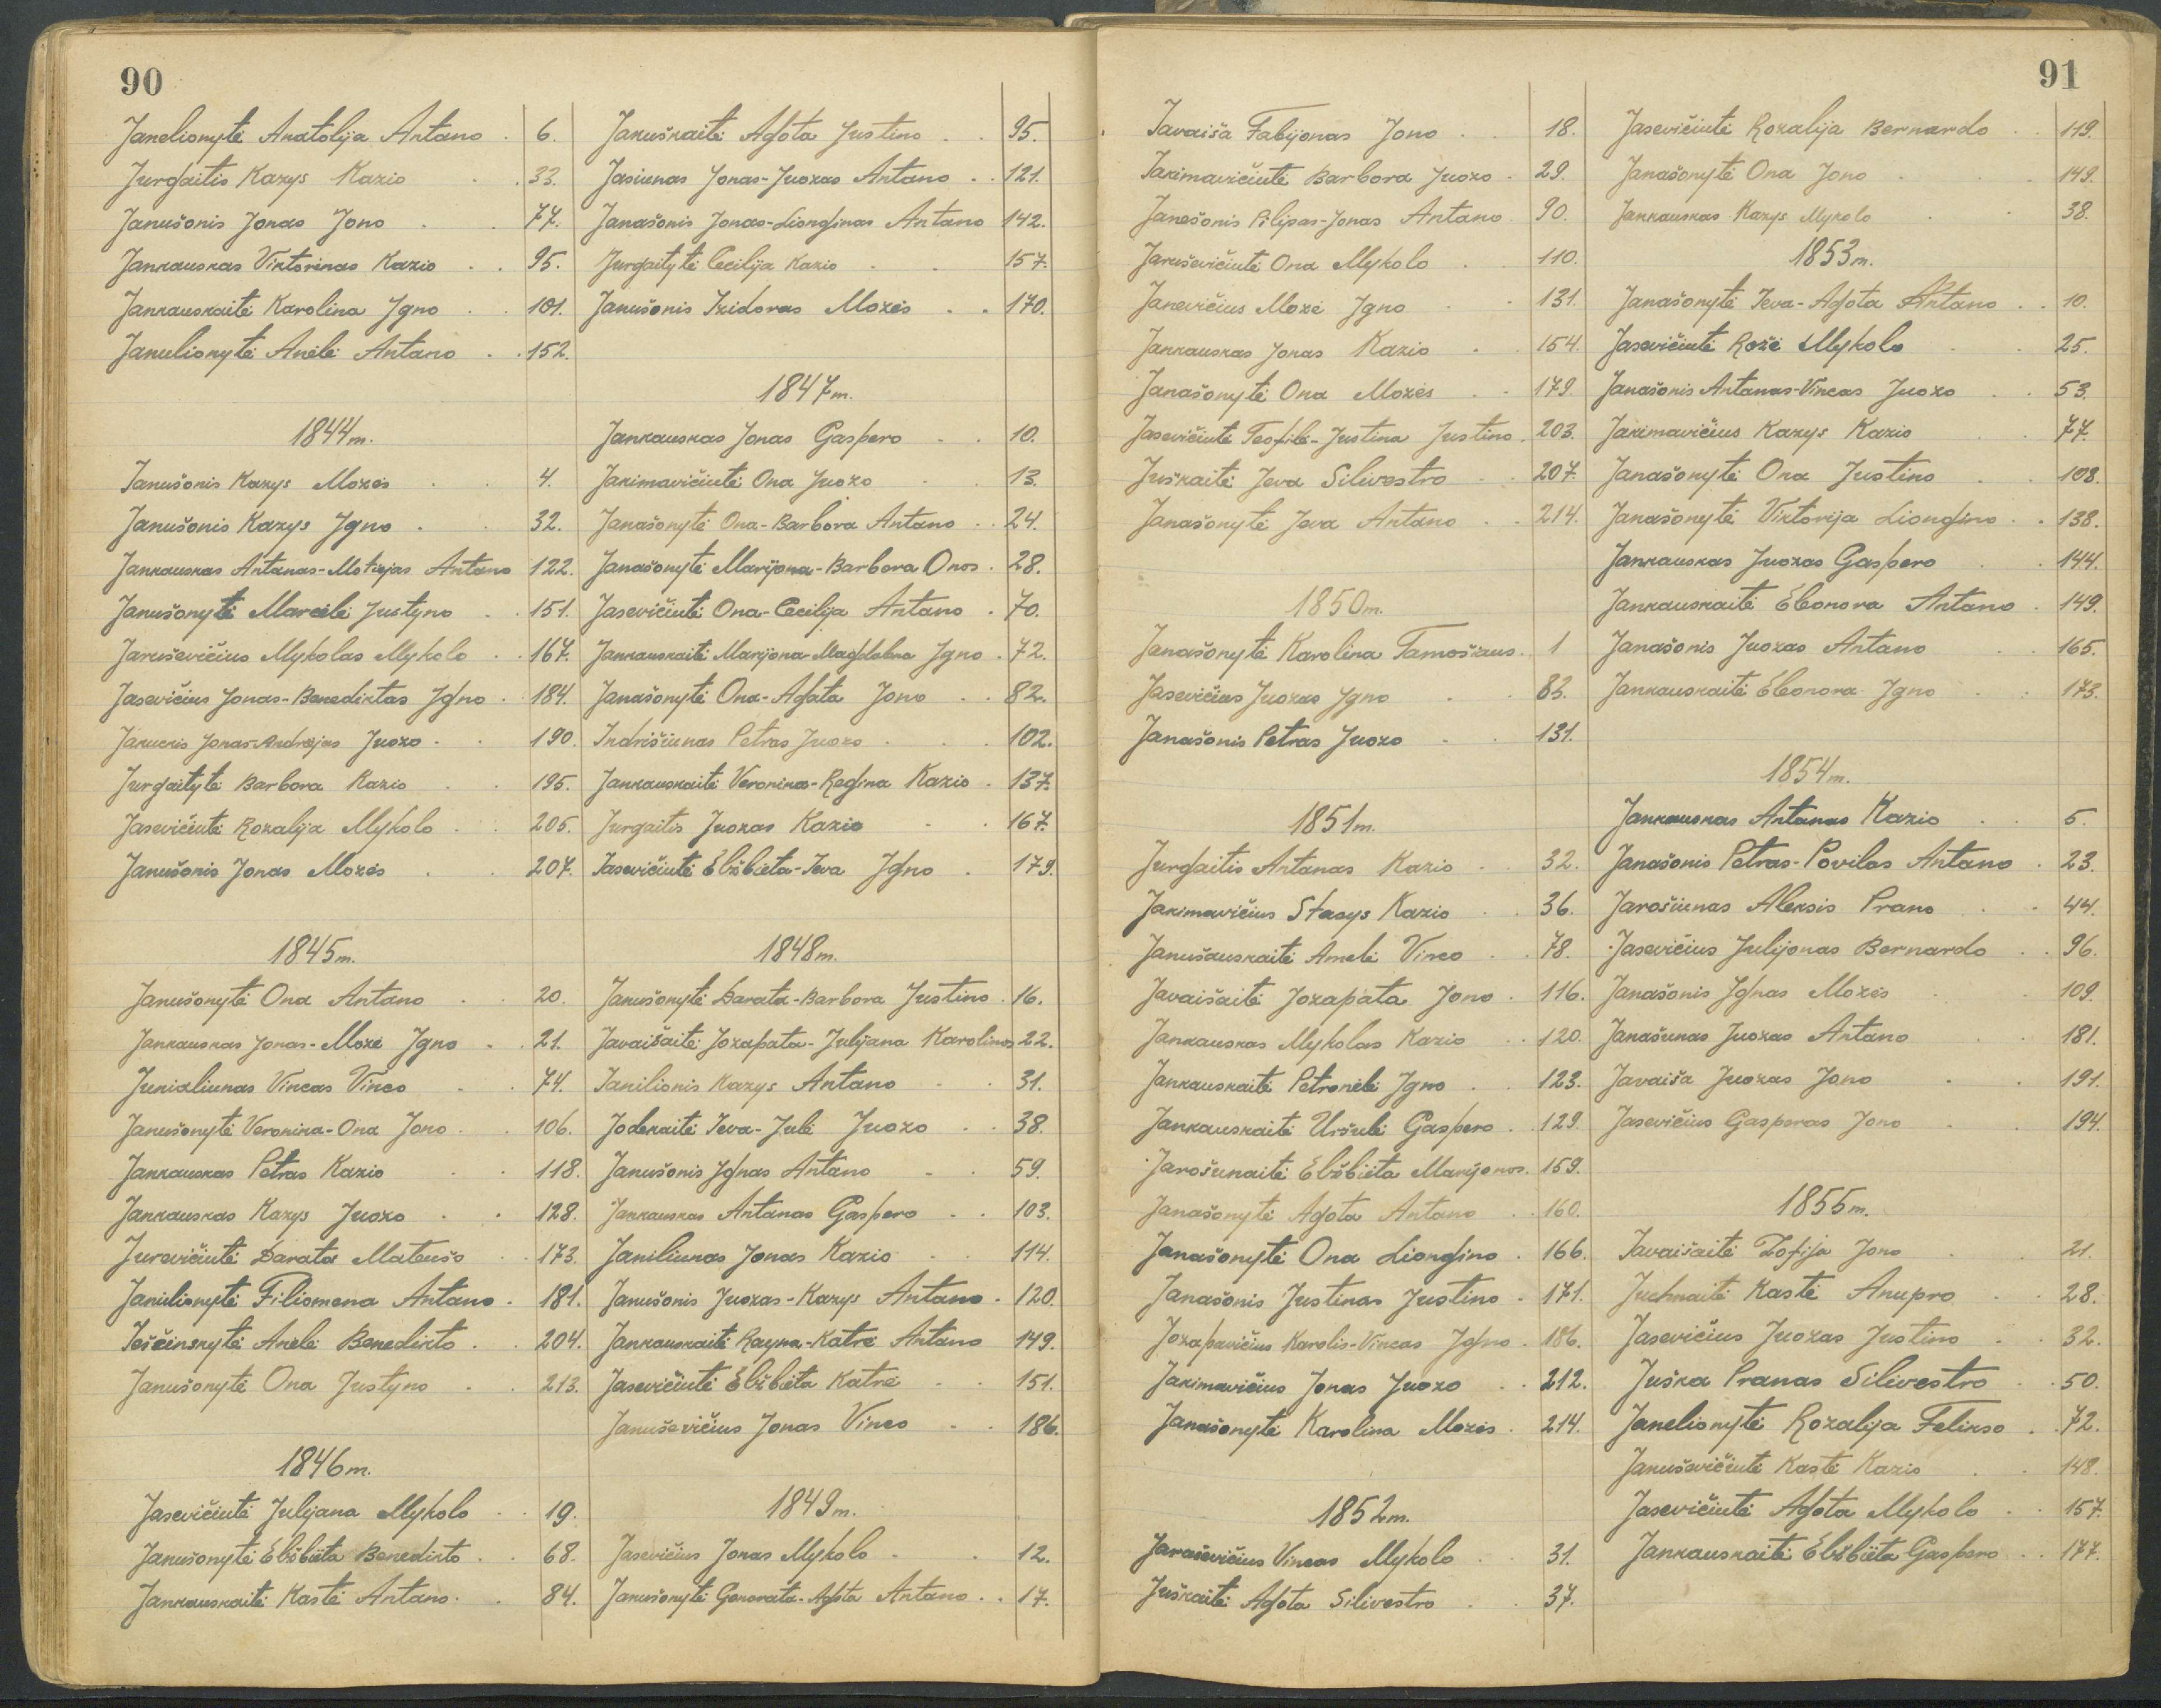 90
Janelionytė Anatolija Antano . 6.
Jurgaitis Kazys Kazio . . 33.
Janušonis Jonas Jono . . 77.
Jankauskas Viktorinas Kazio . . 95.
Jankauskaitė Karolina Igno . . 101.
Janulionytė Anelė Antano . . 152.
1844 m.
Janušonis Kazys Mozės . . 4.
Janušonis Kazys Igno . . 32.
Jankauskas Antanas-Motiejus Antano 122.
Janušonytė Marcelė Justyno . . 151.
Jaruševičius Mykolas Mykolo . . 167.
Jasevičius Jonas-Benediktas Igno . 184.
Jonas-Andrejas Juozo . . 190.
Jurgaitytė Barbora Kazio . . 195.
Jasevičiutė Rozalija Mykolo . . 205.
Janušonis Jonas Mozės . . 207.
1845 m.
Janušonytė Ona Antano . . 20.
Jankauskas Jonas-Mozė Igno . . 21.
Vincas Vinco . . 74.
Janušonytė Veronika-Ona Jono . . 106.
Jankauskas Petras Kazio . . 118.
Jankauskas Kazys Juozo . . 128.
Jurevičiutė Darata Mateušo . . 173.
Janulionytė Filiomena Antano . 181.
Ješčinskytė Anelė Benedikto . . 204.
Janušonytė Ona Justyno . . 213.
1846 m.
Jasevičiutė Julijana Mykolo . . 19.
Janušonytė Elžbieta Benedikto . . 68.
Jankauskaitė Kastė Antano . . 84.
Januškaitė Agota Justino . . 95.
Jasiunas Jonas-Juozas Antano . . 121.
Janašonis Jonas-Lionginas Antano 142.
Jurgaitytė Cecilija Kazio . . 157.
Janušonis Izidoras Mozės . . 170.
1847 m.
Jankauskas Jonas Gaspero . . 10.
Jakimavičiutė Ona Juozo . . 13.
Janašonytė Ona-Barbora Antano . . 24.
Janašonytė Marijona-Barbora Onos . 28.
Jasevičiutė Ona-Cecilija Antano . 70.
Jankauskaitė Marijona-Magdalena Igno . 72.
Janašonytė Ona-Agata Jono . . 82.
Indrišiunas Petras Juozo . . . 102.
Jankauskaitė Veronika-Regina Kazio . 137.
Jurgaitis Juozas Kazio . . 167.
Jasevičiutė Elžbieta-Ieva Igno . 179.
1848 m.
Janušonytė Darata-Barbora Justino . 16.
Javaišaitė Jozapata-Julijana Karolinos 22.
Janilionis Kazys Antano . . 31.
Jodekaitė Ieva-Julė Juozo . . 38.
Janušonis Ignas Antano . . 59.
Jankauskas Antanas Gaspero . . 103.
Janiliunas Jonas Kazio . 114.
Janušonis Juozas-Kazys Antano . 120.
Jankauskaitė Katrė Antano 149.
Jasevičiutė Elžbieta Katrė . . 151.
Januševičius Jonas Vinco . . 186.
1849 m.
Jasevičius Jonas Mykolo . . 12.
Janušonytė Gonorata-Agota Antano . . 17.
91
Javaiša Fabijonas Jono . . 18.
Jakimavičiutė Barbora Juozo . 29.
Janešonis Pilipas-Jonas Antano . 90.
Jaruševičiutė Ona Mykolo . 110.
Janevičius Mozė Igno . . 131.
Jankauskas Jonas Kazio . . 154.
Janašonytė Ona Mozės . . 179.
Jasevičiutė Teofilė-Justina Justino . 203.
Juškaitė Ieva Silivestro . . 207.
Janašonytė Ieva Antano . . 214.
1850 m.
Janašonytė Karolina Tamošiaus . 1
Jasevičius Juozas Igno . . 83.
Janašonis Petras Juozo . . 131.
1851 m.
Jurgaitis Antanas Kazio . . 32.
Jakimavičius Stasys Kazio . . 36.
Janušauskaitė Amelė Vinco . . 78.
Javaišaitė Jozapata Jono . 116.
Jankauskas Mykolas Kazio . . 120.
Jankauskaitė Petronėlė Igno . . 123.
Jankauskaitė Uršulė Gaspero . . 129.
Jarošunaitė Elžbieta Marijonos . 159.
Janašonytė Agota Antano . . 160.
Janašonytė Ona Liongino . 166.
Janašonis Justinas Justino . 171.
Jozapavičius Karolis-Vincas Igno . 186.
Jakimavičius Jonas Juozo . . 212.
Janašonytė Karolina Mozės . 214.
1852 m.
Jaraševičius Vincas Mykolo . . 31.
Juškaitė Agota Silivestro . . 37.
Jasevičiutė Rozalija Bernardo . . 119.
Janašonytė Ona Jono . . . 149.
Jankauskas Kazys Mykolo . . 38.
1853 m.
Janašonytė Ieva-Agota Antano . . 10.
Jasevičiutė Rožė Mykolo . . 25.
Janašonis Antanas-Vincas Juozo . . 53.
Jakimavičius Kazys Kazio . . 77.
Janašonytė Ona Justino . . 108.
Janašonytė Viktorija Liongino . . 138.
Jankauskas Juozas Gaspero . . 144.
Jankauskaitė Eleonora Antano . 149.
Janašonis Juozas Antano . . 165.
Jankauskaitė Eleonora Igno . . 173.
1854 m.
Jankauskas Antanas Kazio . . 5.
Janašonis Petras-Povilas Antano . 23.
Jarošiunas Aleksis Prano . . 44.
Jasevičius Julijonas Bernardo . . 96.
Janašonis Ignas Mozės . . 109.
Janašunas Juozas Antano . . 181.
Javaiša Juozas Jono . . 191.
Jasevičius Gasperas Jono . . 194.
1855 m.
Javaišaitė Zofija Jono . . 21.
Juchnaitė Kastė Anupro . . 28.
Jasevičius Juozas Justino . . 32.
Juška Pranas Silivestro . . 50.
Janelionytė Rozalija Felikso . . 72.
Janušavičiutė Kastė Kazio . . 148.
Jasevičiutė Agota Mykolo . . 157.
Jankauskaitė Elžbieta Gaspero . . 177.